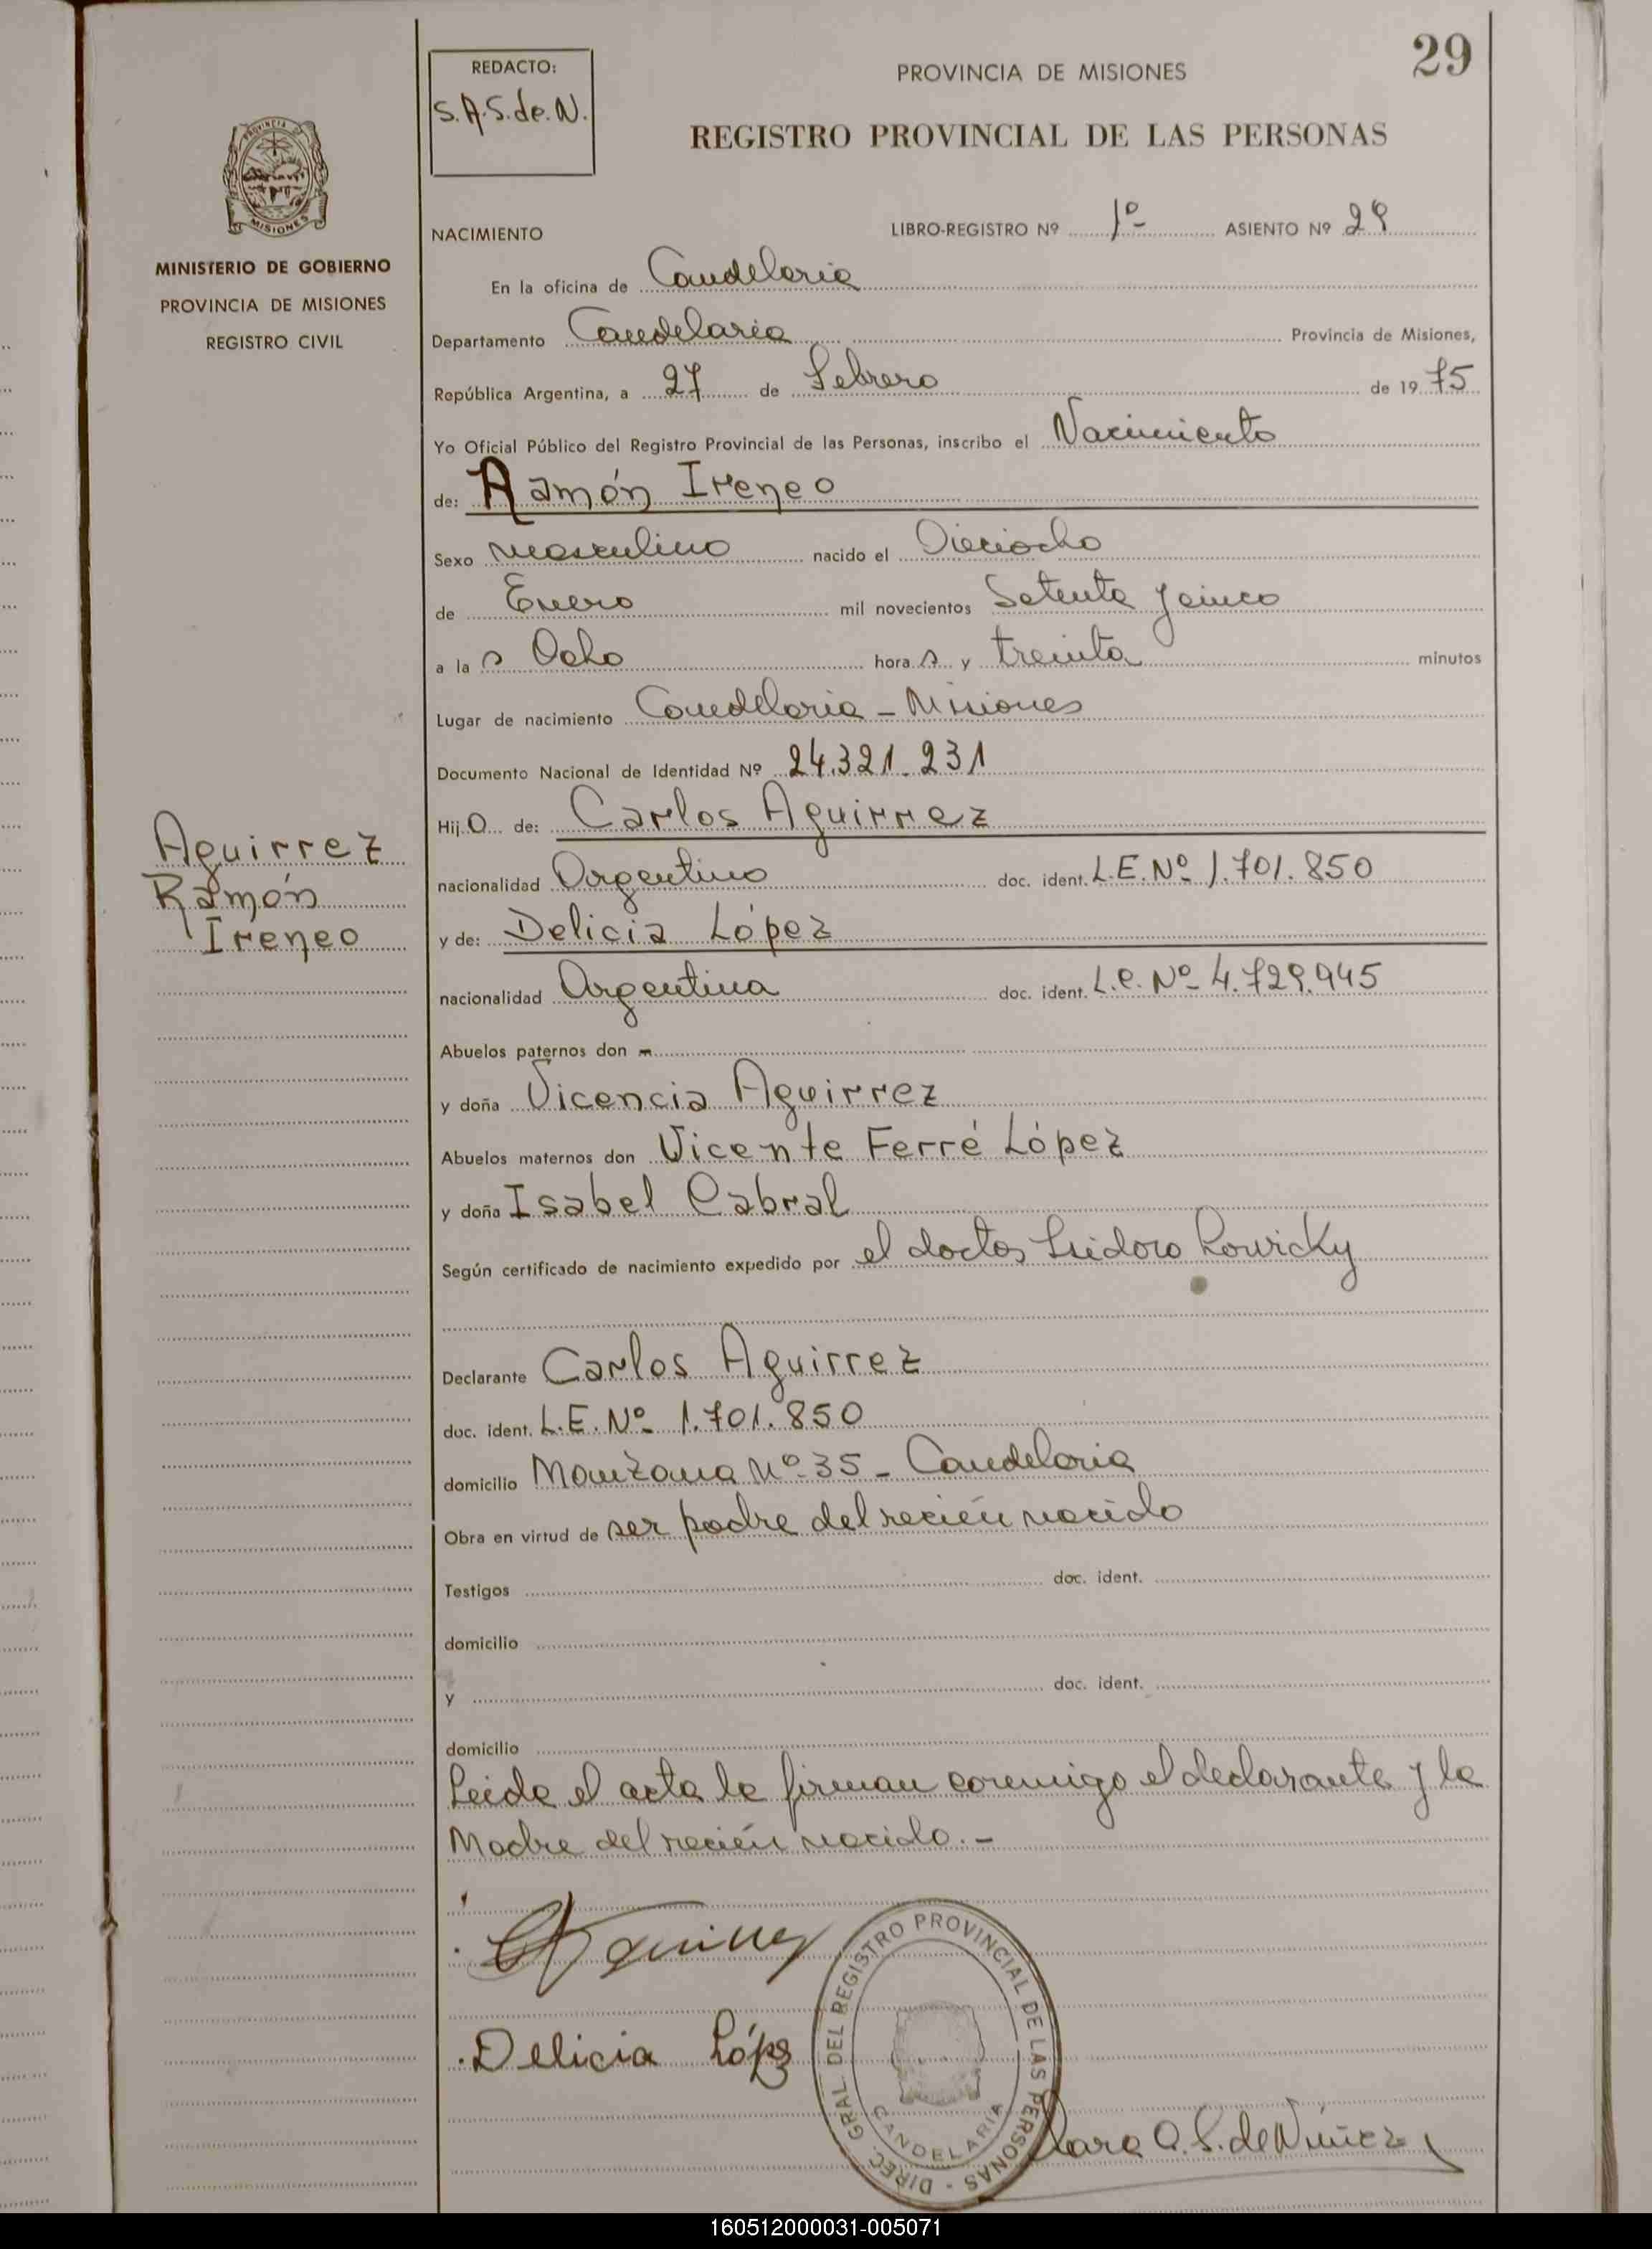 29
REDACTO:
S.A.S. de. N.
PROVINCIA DE MISIONES
REGISTRO PROVINCIAL DE LAS PERSONAS
PROVINCIA DE
MISIONES
MINISTERIO DE GOBIERNO
PROVINCIA DE MISIONES
REGISTRO CIVIL
NACIMIENTO
LIBRO-REGISTRO Nº 1º- ASIENTO Nº 29
En la oficina de Candelaria
Departamento Candelaria Provincia de Misiones,
República Argentina, a 27 de Febrero de 19 75
Yo Oficial Público del Registro Provincial de las Personas, inscribo el Nacimiento
de: Ramón Ireneo
Sexo masculino nacido el Dieciocho
de Enero mil novecientos Setenta y cinco
a la s Ocho hora s y treinta minutos
Lugar de nacimiento Candelaria - Misiones
Documento Nacional de Identidad Nº 24.321.231
Hij o de: Carlos Aguirrez
nacionalidad Argentino doc. ident. L.E. Nº 1.701.850
y de: Delicia López
nacionalidad Argentina doc. ident. L.C. Nº 4.729.945
Aguirrez
Ramón
Ireneo
Abuelos paternos don -
y doña Vicencia Aguirrez
Abuelos maternos don Vicente Ferré López
y doña Isabel Cabral
Según certificado de nacimiento expedido por el doctor Isidoro Lowicky
Declarante Carlos Aguirrez
doc. ident. L.E. Nº 1.701.850
domicilio Manzana Nº 35 - Candelaria
Obra en virtud de ser padre del recién nacido
Testigos doc. ident.
domicilio
y doc. ident.
domicilio
Leída el acta la firman conmigo el declarante y la
Madre del recién nacido.-
Delicia López
DIREC. GRAL. DEL REGISTRO PROVINCIAL DE LAS PERSONAS -
CANDELARIA
Clara A. S. de Núñez
160512000031-005071